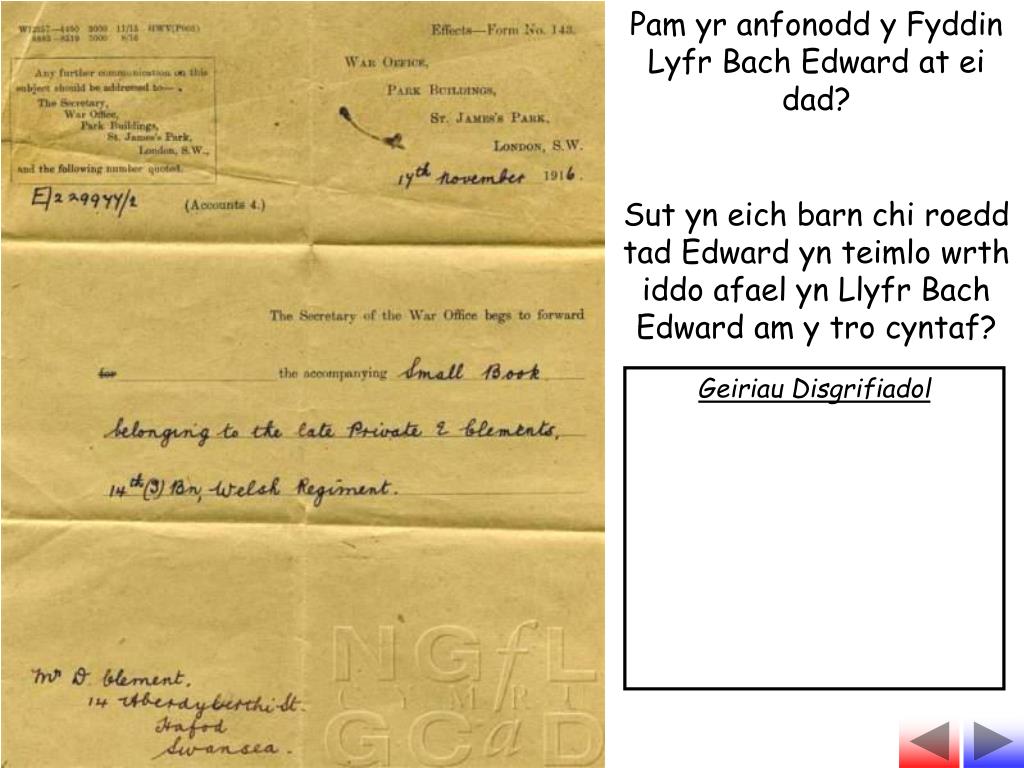 W12557—4490 3000 11/15 HWV(P003)
8883—8519 3000 8/16
Effects—Form No. 143.
Any further communication on this
subject should be addressed to—
The Secretary,
War Office,
Park Buildings,
St. James's Park,
London, S.W.,
and the following number quoted.
E/229944/2
(Accounts 4.)
War Office,
Park Buildings,
St. James's Park,
London, S.W.
14th November 1916.
The Secretary of the War Office begs to forward
for the accompanying Small Book
belonging to the late Private E Clements,
14th (S) Bn, Welsh Regiment.
Mr D. Clement.
14 Aberdyberthi St.
Hafod
Swansea.
NGfL
CYMRU
GCaD
Pam yr anfonodd y Fyddin
Lyfr Bach Edward at ei
dad?
Sut yn eich barn chi roedd
tad Edward yn teimlo wrth
iddo afael yn Llyfr Bach
Edward am y tro cyntaf?
Geiriau Disgrifiadol